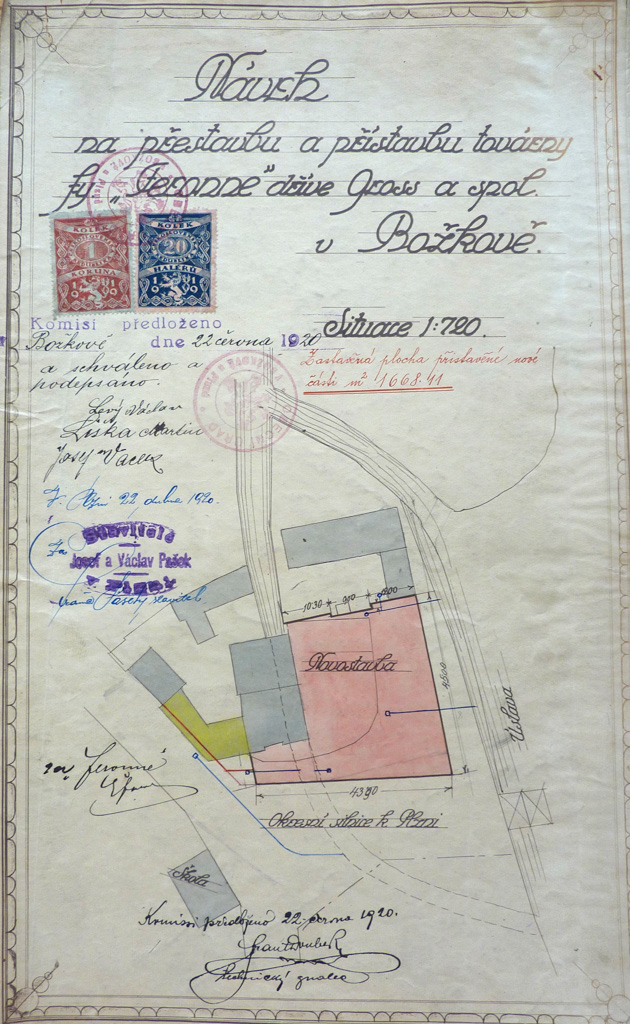 Návrh
na přestavbu a přístavbu továrny
fy „Feronne" dříve Gross a spol.
v Božkově.
KOLEK
1
KORUNA
1919
KOLEK
20
HALÉŘŮ
1919
Situace 1:720.
Komisi předloženo
Božkově dne 22 června 1920
a schváleno a
podepsáno.
Zastavěná plocha přistavěné nové
části m² 1668.41
OBECNÍ ÚŘAD
Levý Václav
Liška Martin
Josef Vacek
V Plzni 22 dubna 1920.
Stavitelé
Josef a Václav Pašek
v Plzni
stavitel
1030
910
4800
Novostavba
Úslava
za „Feronne"
4390
Okresní silnice k Plzni
Škola
Komisi předloženo 22. června 1920.
technický znalec